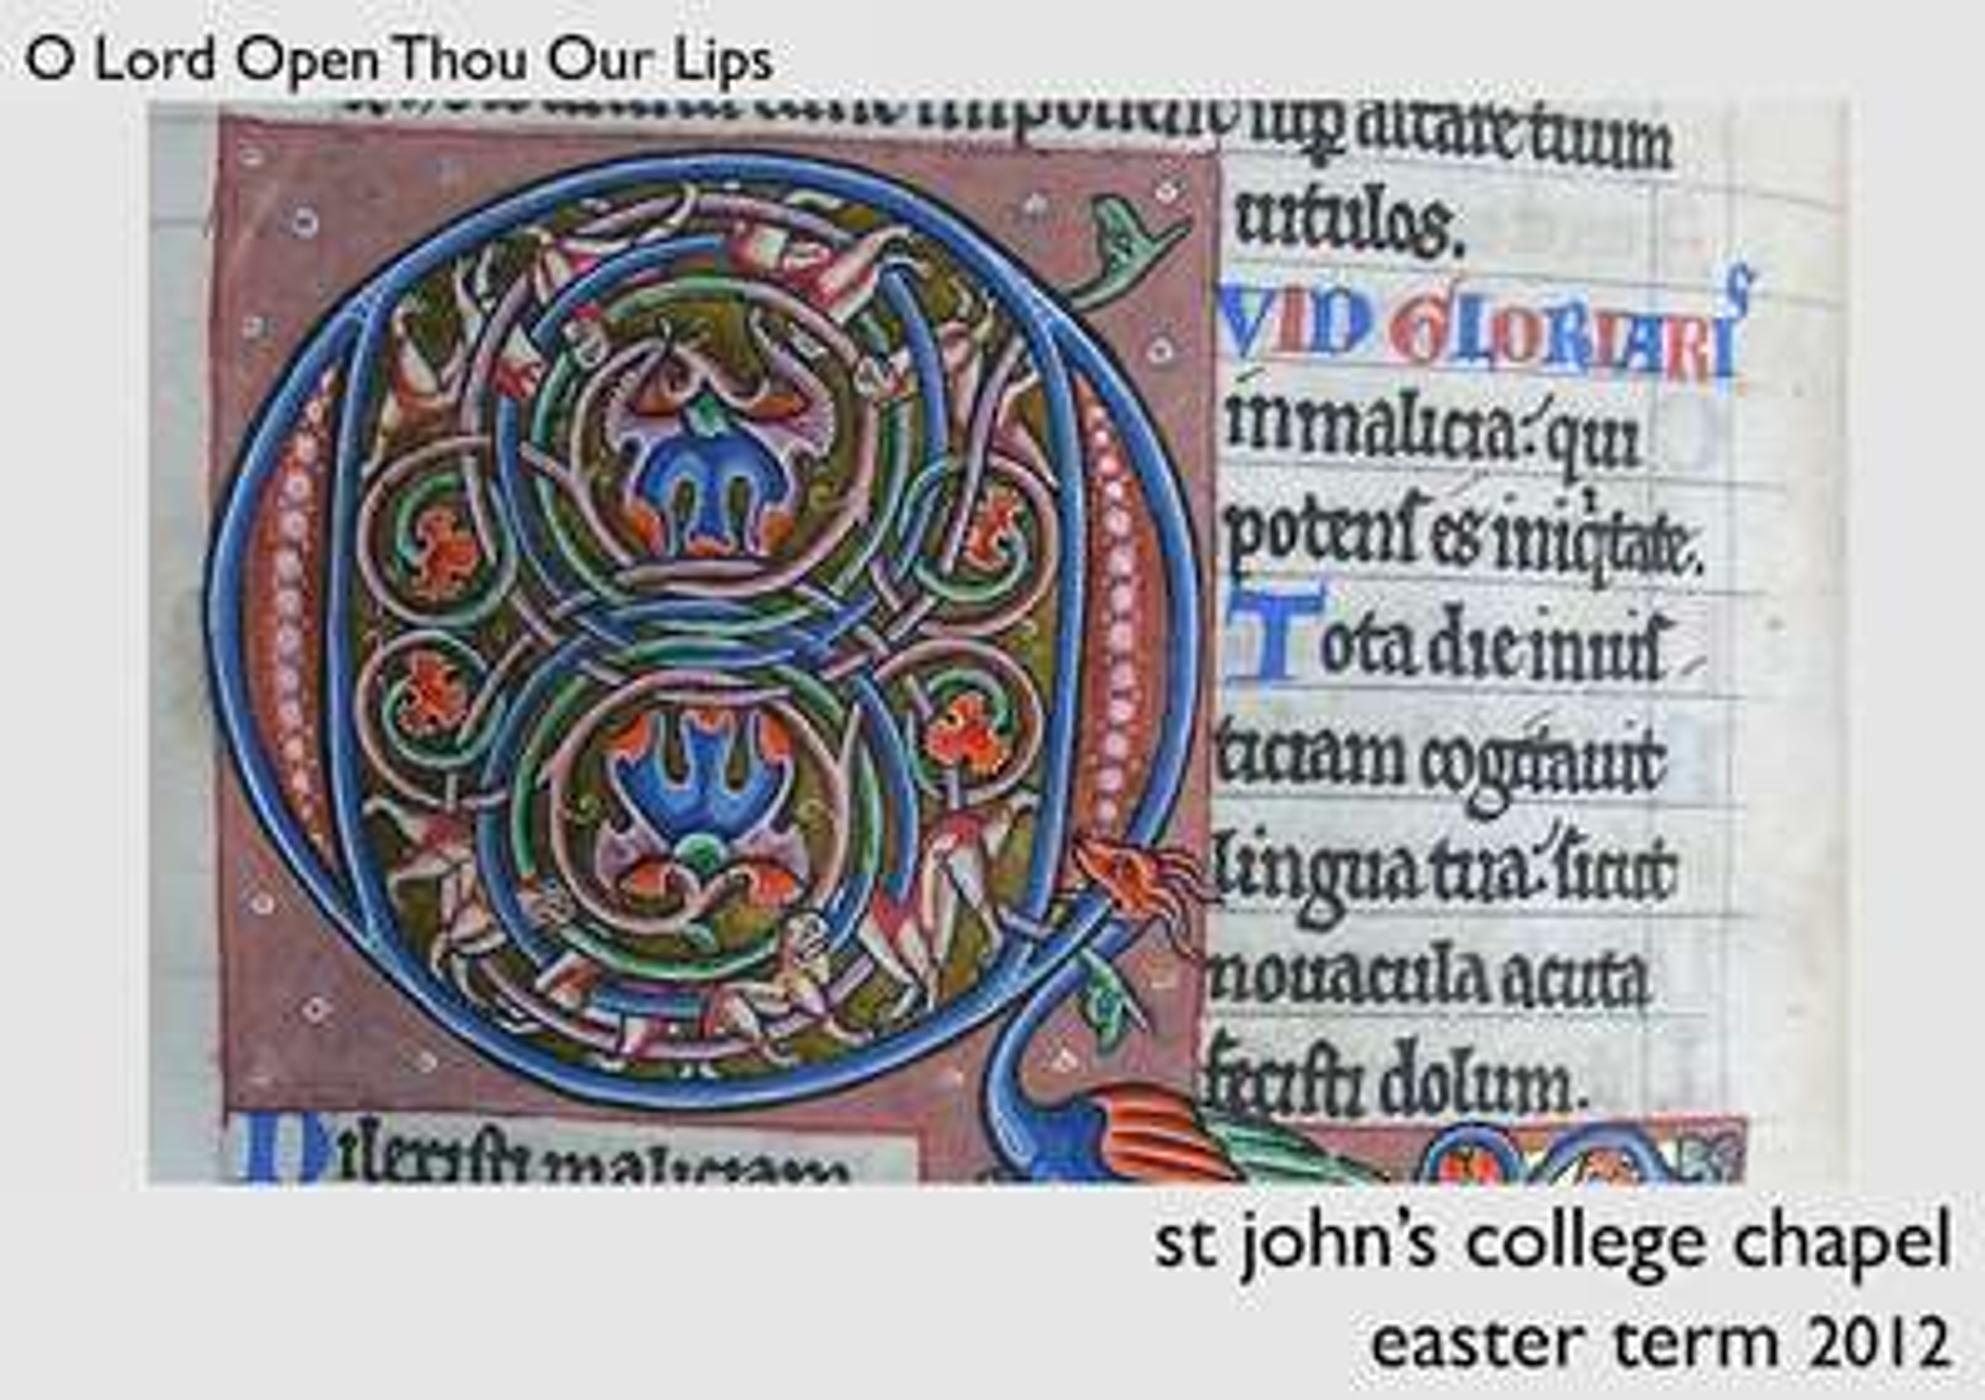 O Lord Open Thou Our Lips
imponent sup altare tuum
uitulos.
QVID GLORIARIS
in malicia: qui
potens es iniqtate.
Tota die iniusſ
ticiam cogitauit
lingua tua: sicut
nouacula acuta
fecisti dolum.
Dilexisti maliciam
st john's college chapel
easter term 2012